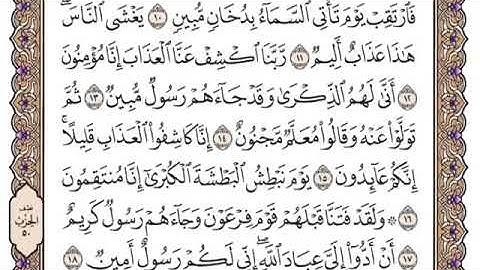 فَٱرۡتَقِبۡ يَوۡمَ تَأۡتِي ٱلسَّمَآءُ بِدُخَانٖ مُّبِينٖ ١٠ يَغۡشَى ٱلنَّاسَۖ
هَٰذَا عَذَابٌ أَلِيمٞ ١١ رَّبَّنَا ٱكۡشِفۡ عَنَّا ٱلۡعَذَابَ إِنَّا مُؤۡمِنُونَ
١٢ أَنَّىٰ لَهُمُ ٱلذِّكۡرَىٰ وَقَدۡ جَآءَهُمۡ رَسُولٞ مُّبِينٞ ١٣ ثُمَّ
تَوَلَّوۡاْ عَنۡهُ وَقَالُواْ مُعَلَّمٞ مَّجۡنُونٌ ١٤ إِنَّا كَاشِفُواْ ٱلۡعَذَابِ قَلِيلًاۚ
إِنَّكُمۡ عَآئِدُونَ ١٥ يَوۡمَ نَبۡطِشُ ٱلۡبَطۡشَةَ ٱلۡكُبۡرَىٰٓ إِنَّا مُنتَقِمُونَ
١٦ ۞ وَلَقَدۡ فَتَنَّا قَبۡلَهُمۡ قَوۡمَ فِرۡعَوۡنَ وَجَآءَهُمۡ رَسُولٞ كَرِيمٌ
١٧ أَنۡ أَدُّوٓاْ إِلَيَّ عِبَادَ ٱللَّهِۖ إِنِّي لَكُمۡ رَسُولٌ أَمِينٞ ١٨
نصف
الحزب
٥٠